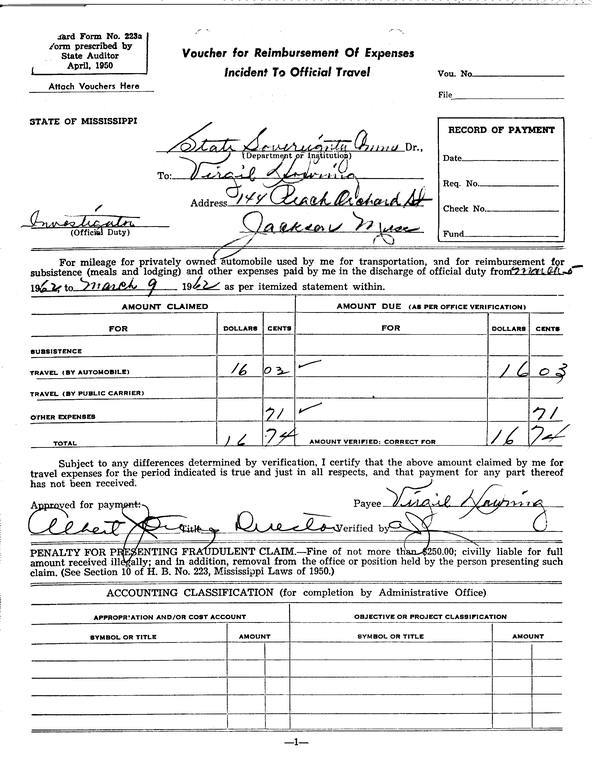 ard Form No. 223a
orm prescribed by
State Auditor
April, 1950
Attach Vouchers Here
Voucher for Reimbursement Of Expenses
Incident To Official Travel
Vou. No.
File
STATE OF MISSISSIPPI
RECORD OF PAYMENT
State Sovereignty Comm Dr.,
(Department or Institution)
Date
To: Virgil Downing
Req. No.
Address 144 Peach Orchard St
Check No.
Investigator
Jackson Miss
(Official Duty)
Fund
For mileage for privately owned automobile used by me for transportation, and for reimbursement for
subsistence (meals and lodging) and other expenses paid by me in the discharge of official duty from March 5
1962 to March 9 1962 as per itemized statement within.
AMOUNT CLAIMED AMOUNT DUE (AS PER OFFICE VERIFICATION)
FOR DOLLARS CENTS FOR DOLLARS CENTS
SUBSISTENCE
TRAVEL (BY AUTOMOBILE) 16 03 16 03
TRAVEL (BY PUBLIC CARRIER)
OTHER EXPENSES 71 71
TOTAL 16 74 AMOUNT VERIFIED: CORRECT FOR 16 74
Subject to any differences determined by verification, I certify that the above amount claimed by me for
travel expenses for the period indicated is true and just in all respects, and that payment for any part thereof
has not been received.
Approved for payment: Payee Virgil Downing
Albert Jones Title Director Verified by
PENALTY FOR PRESENTING FRAUDULENT CLAIM.—Fine of not more than $250.00; civilly liable for full
amount received illegally; and in addition, removal from the office or position held by the person presenting such
claim. (See Section 10 of H. B. No. 223, Mississippi Laws of 1950.)
ACCOUNTING CLASSIFICATION (for completion by Administrative Office)
APPROPRIATION AND/OR COST ACCOUNT OBJECTIVE OR PROJECT CLASSIFICATION
SYMBOL OR TITLE AMOUNT SYMBOL OR TITLE AMOUNT
—1—